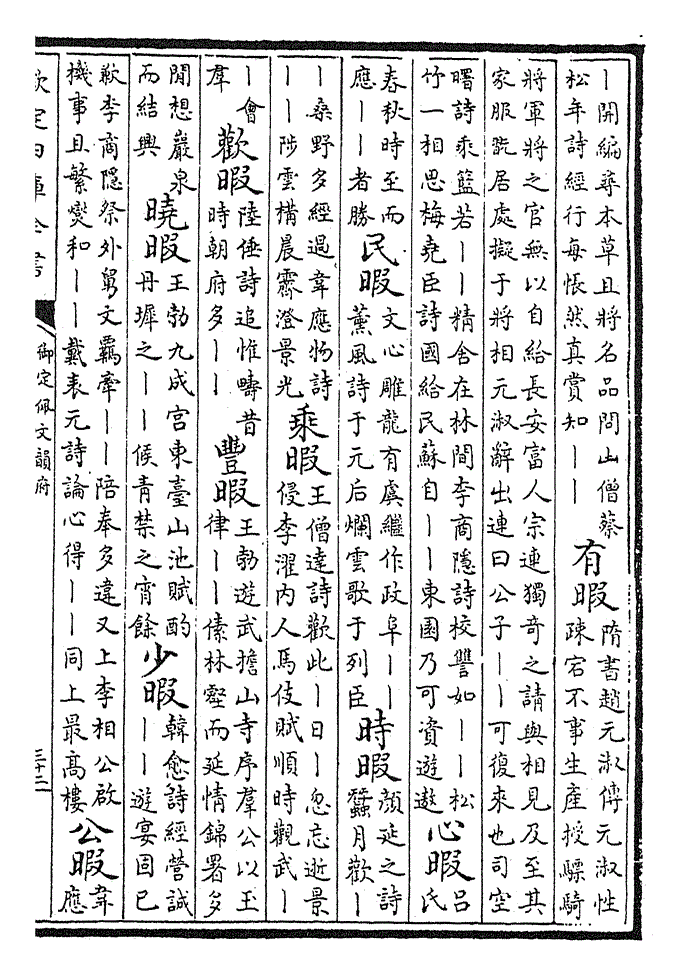 丨開編尋本草且將名品問山僧蔡
松年詩經行每悵然真賞知丨丨
有暇
隋書趙元淑傳元淑性
疎宕不事生產授驃騎
將軍將之官無以自給長安富人宗連獨奇之請與相見及至其
家服翫居處擬于將相元淑辭出連曰公子丨丨可復來也司空
曙詩乘籃若丨丨精舍在林間李商隱詩校讐如丨丨松
竹一相思梅堯臣詩國給民蘇自丨丨東園乃可資遊遨
心暇
呂
氏
春秋時至而
應丨丨者勝
民暇
文心雕龍有虞繼作政阜丨丨
薰風詩于元后爛雲歌于列臣
時暇
顏延之詩
蠶月歡丨
丨桑野多經過韋應物詩
丨丨陟雲構晨霽澄景光
乘暇
王僧達詩歡此丨日丨忽忘逝景
侵李濯內人馬伎賦順時觀武丨
丨會
羣
歡暇
陸倕詩追惟疇昔
時朝府多丨丨
豐暇
王勃遊武擔山寺序羣公以玉
律丨丨傃林壑而延情錦署多
閒想巖泉
而結興
曉暇
王勃九成宮東臺山池賦酌
丹墀之丨丨候青禁之宵餘
少暇
韓愈詩經營誠
丨丨遊宴固已
歉李商隱祭外舅文羈牽丨丨陪奉多違又上李相公啟
機事且繁燮和丨丨戴表元詩論心得丨丨同上最高樓
公暇
韋
應
欽定四庫全書
御定佩文韻府